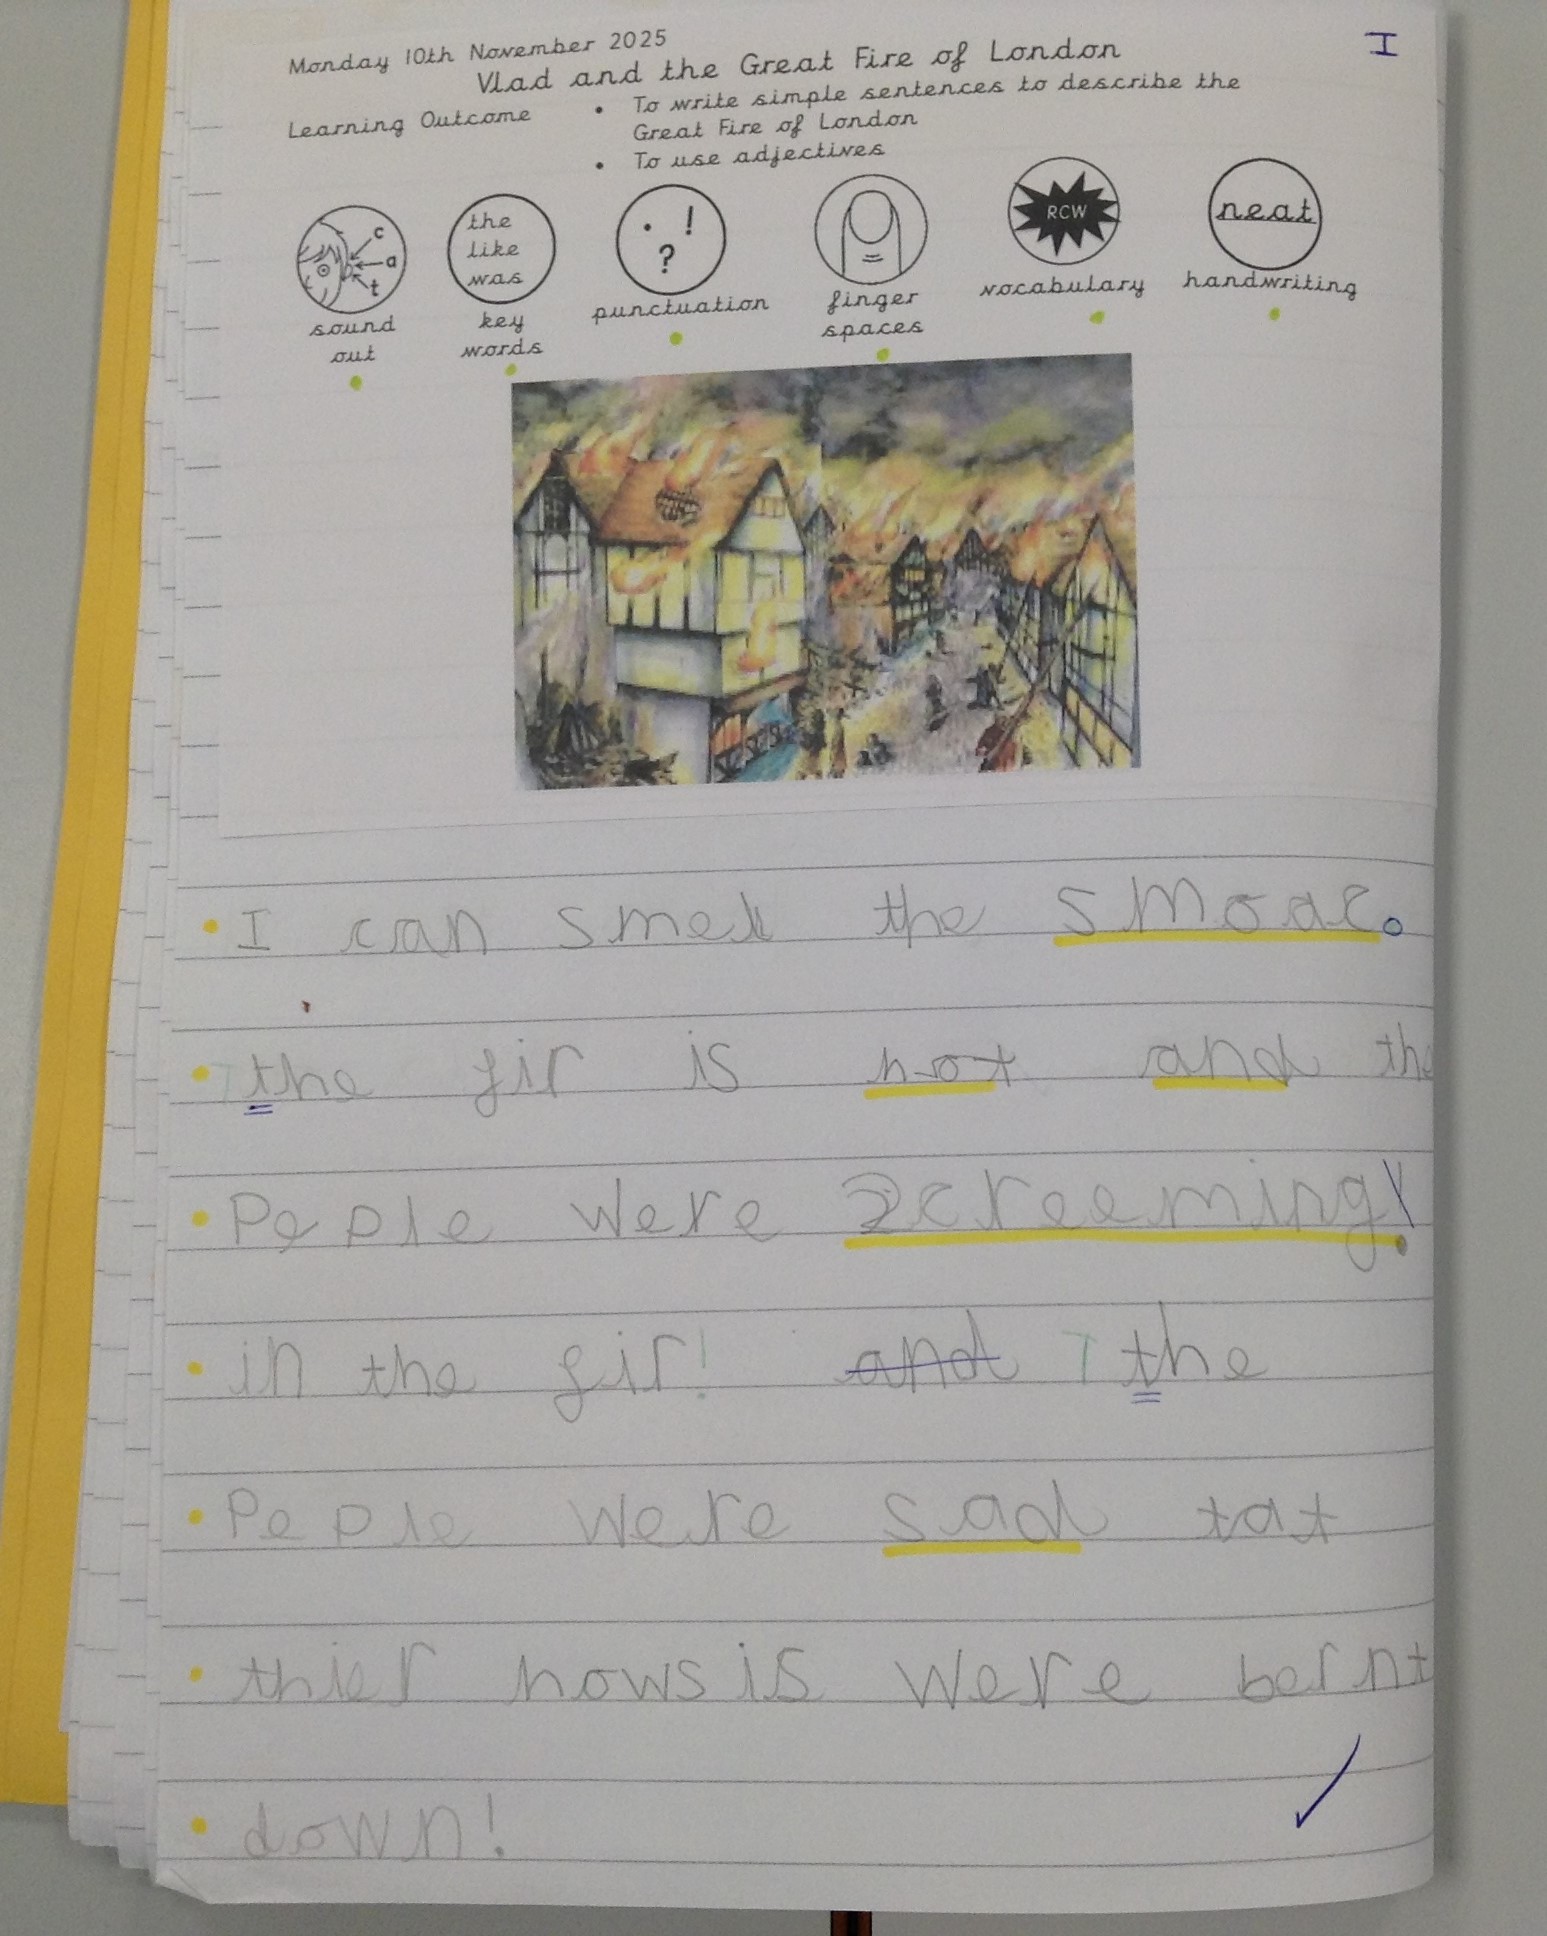 I
Monday 10th November 2025
Vlad and the Great Fire of London
Learning Outcome
• To write simple sentences to describe the
Great Fire of London
• To use adjectives
c
a
t
the
like
was
. !
?
RCW
neat
sound
out
key
words
punctuation
finger
spaces
vocabulary
handwriting
I can smell the smoac.
T the fir is hot and the
Peple were screeming!
in the fir! and T the
Peple were sad tat
thier howsis were bernt
down!